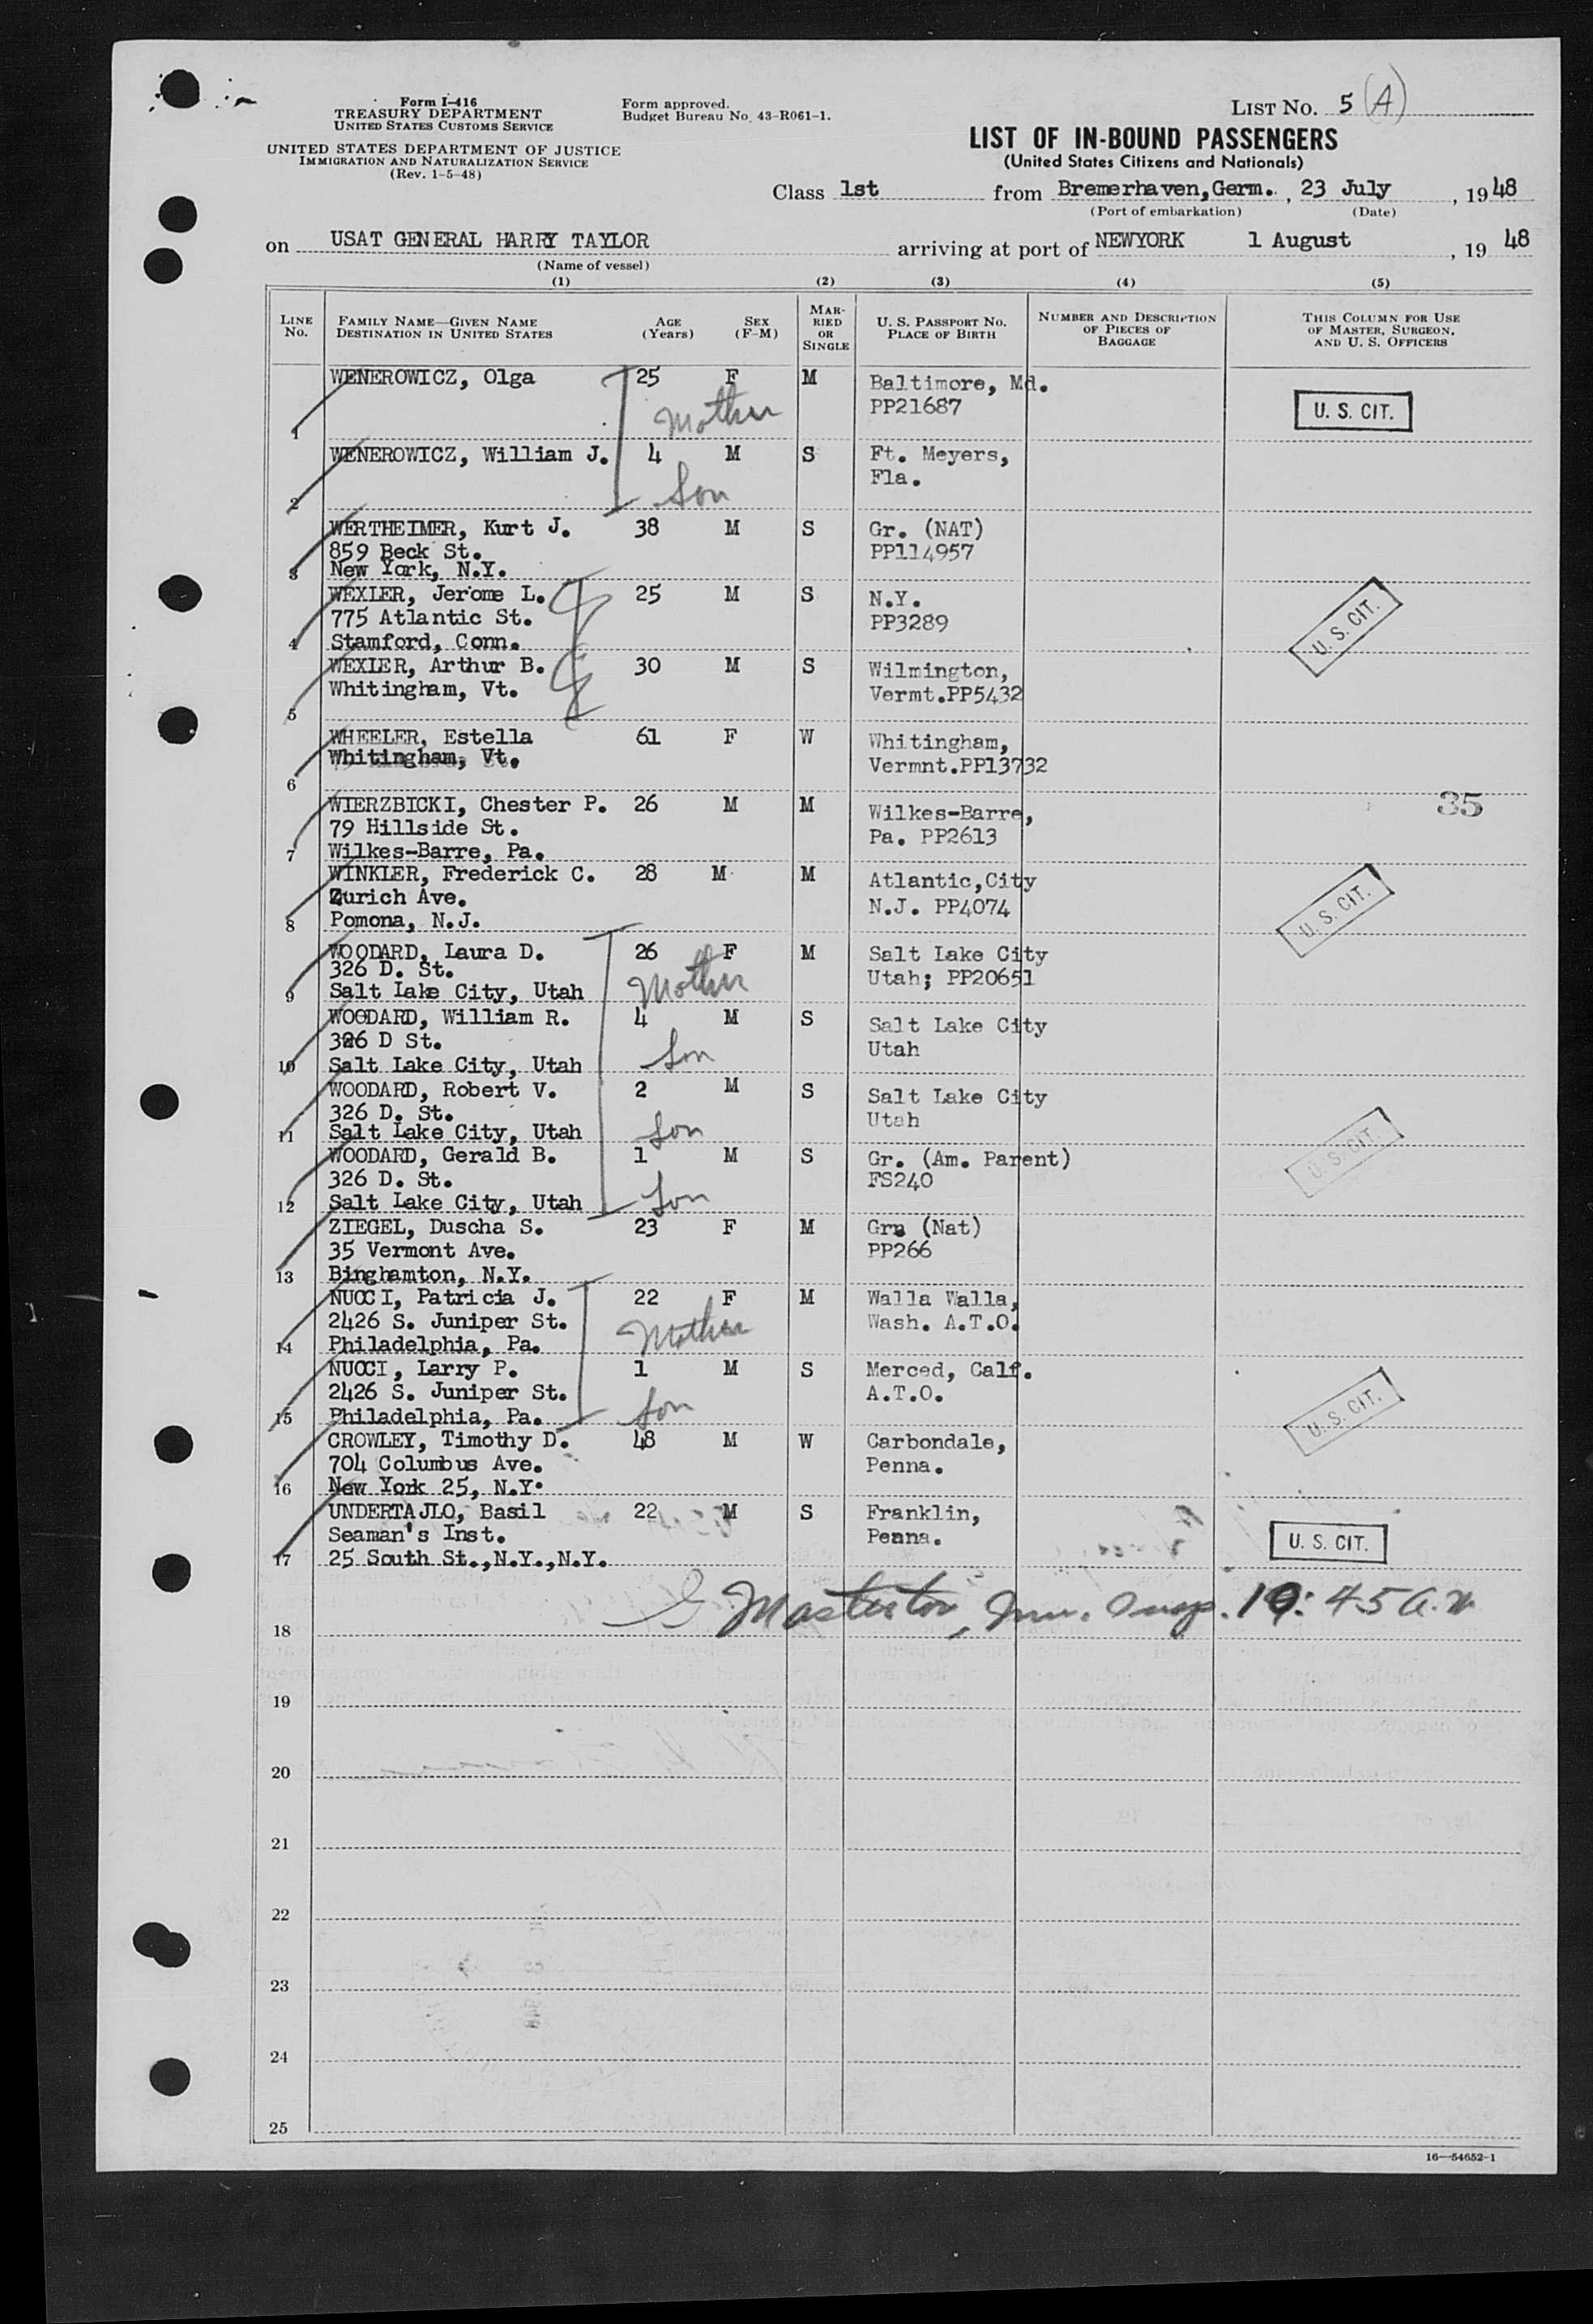 Form I-416
TREASURY DEPARTMENT
UNITED STATES CUSTOMS SERVICE
UNITED STATES DEPARTMENT OF JUSTICE
IMMIGRATION AND NATURALIZATION SERVICE
(Rev. 1-5-48)
Form approved.
Budget Bureau No. 43-R061-1.
LIST No. 5 (A)
LIST OF IN-BOUND PASSENGERS
(United States Citizens and Nationals)
Class 1st from Bremerhaven,Germ., 23 July, 1948
(Port of embarkation) (Date)
on USAT GENERAL HARRY TAYLOR arriving at port of NEWYORK 1 August, 19 48
(Name of vessel)
(1) (2) (3) (4) (5)
LINE No. FAMILY NAME—GIVEN NAME DESTINATION IN UNITED STATES AGE (Years) SEX (F-M) MARRIED OR SINGLE U. S. PASSPORT No. PLACE OF BIRTH NUMBER AND DESCRIPTION OF PIECES OF BAGGAGE THIS COLUMN FOR USE OF MASTER, SURGEON, AND U. S. OFFICERS
WENEROWICZ, Olga 25 F M Baltimore, Md.
Mother PP21687 U. S. CIT.
1
WENEROWICZ, William J. 4 M S Ft. Meyers,
Son Fla.
2
WERTHEIMER, Kurt J. 38 M S Gr. (NAT)
859 Beck St. PP114957
3 New York, N.Y.
WEXLER, Jerome L. 25 M S N.Y.
775 Atlantic St. PP3289 U. S. CIT.
4 Stamford, Conn.
WEXLER, Arthur B. 30 M S Wilmington,
Whitingham, Vt. Vermt.PP5432
5
WHEELER, Estella 61 F W Whitingham,
Whitingham, Vt. Vermnt.PP13732
6
WIERZBICKI, Chester P. 26 M M Wilkes-Barre, 35
79 Hillside St. Pa. PP2613
7 Wilkes-Barre, Pa.
WINKLER, Frederick C. 28 M M Atlantic,City
Zurich Ave. N.J. PP4074 U. S. CIT.
8 Pomona, N.J.
WOODARD, Laura D. 26 F M Salt Lake City
326 D. St. Mother Utah; PP20651
9 Salt Lake City, Utah
WOODARD, William R. 4 M S Salt Lake City
326 D St. Son Utah
10 Salt Lake City, Utah
WOODARD, Robert V. 2 M S Salt Lake City
326 D. St. Son Utah
11 Salt Lake City, Utah
WOODARD, Gerald B. 1 M S Gr. (Am. Parent) U. S. CIT.
326 D. St. Son FS240
12 Salt Lake City, Utah
ZIEGEL, Duscha S. 23 F M Gr. (Nat)
35 Vermont Ave. PP266
13 Binghamton, N.Y.
NUCCI, Patricia J. 22 F M Walla Walla,
2426 S. Juniper St. Mother Wash. A.T.O.
14 Philadelphia, Pa.
NUCCI, Larry P. 1 M S Merced, Calf.
2426 S. Juniper St. Son A.T.O. U. S. CIT.
15 Philadelphia, Pa.
CROWLEY, Timothy D. 48 M W Carbondale,
704 Columbus Ave. Penna.
16 New York 25, N.Y.
UNDERTAJLO, Basil 22 M S Franklin,
Seaman's Inst. Penna. U. S. CIT.
17 25 South St.,N.Y.,N.Y.
Masterton, Imm. Insp. 10:45 a.m
18
19
20
21
22
23
24
25
16—54652-1